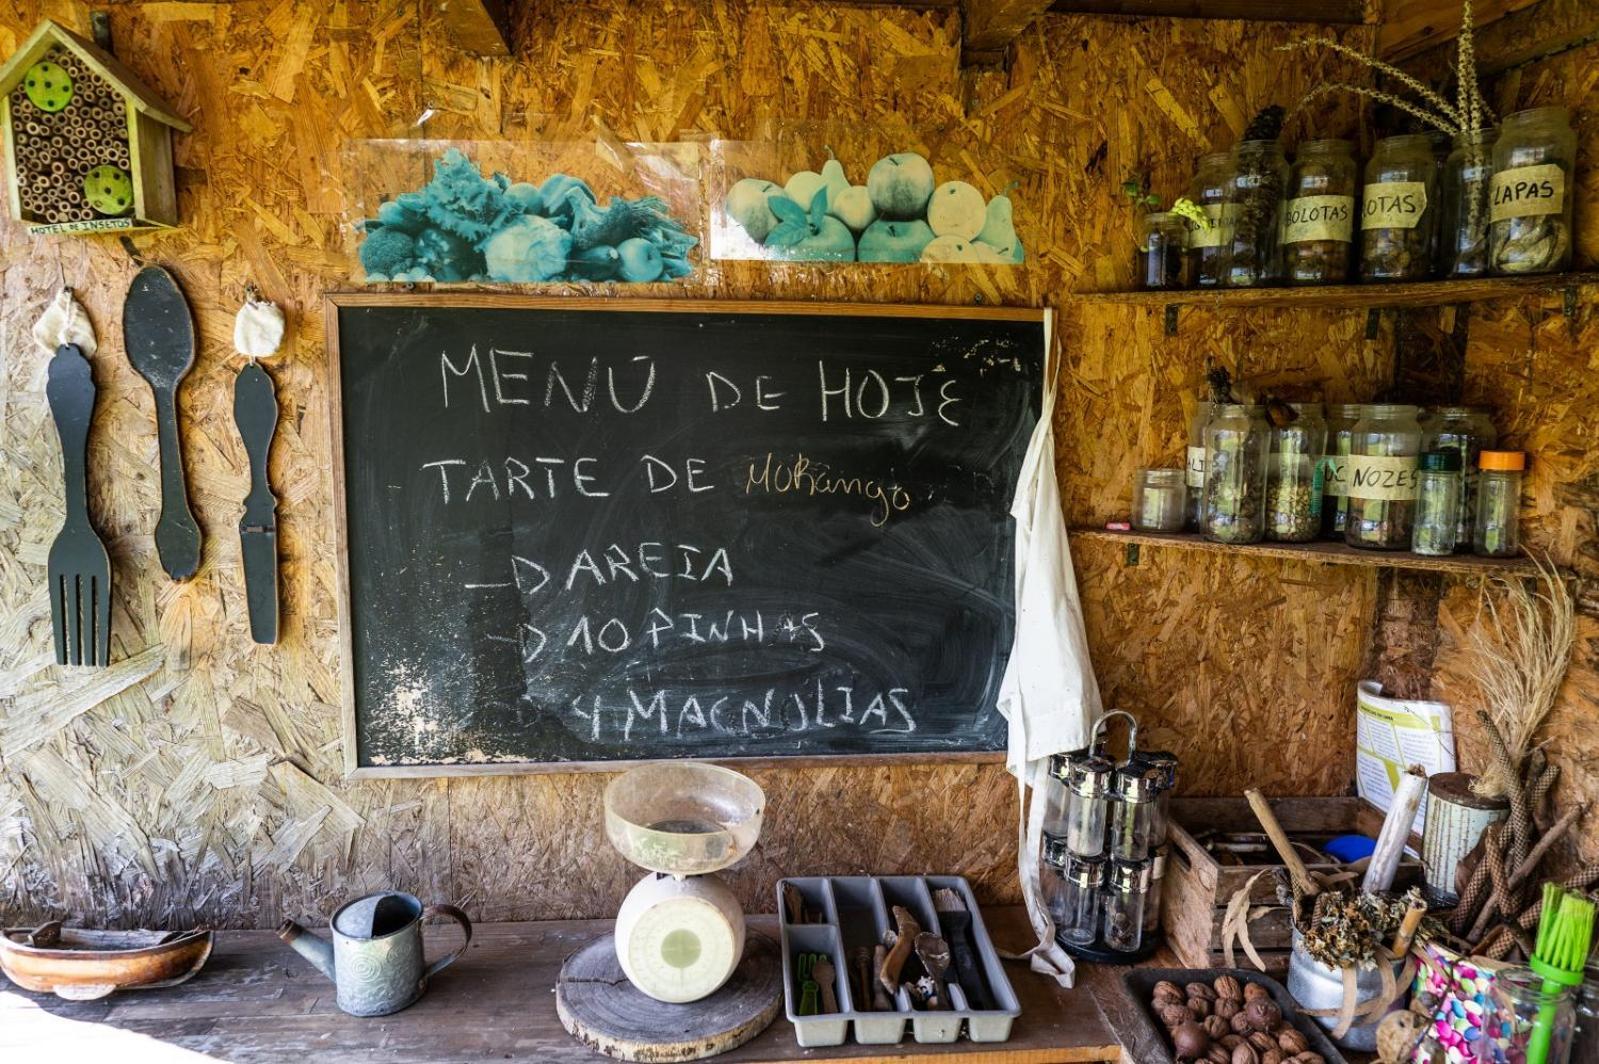 HOTEL DE INSETOS
MENÚ DE HOJE
TARTE DE MORango
AREIA
10 PINHAS
4 MAGNOLIAS
BOLOTAS
OTAS
LAPAS
NOZES